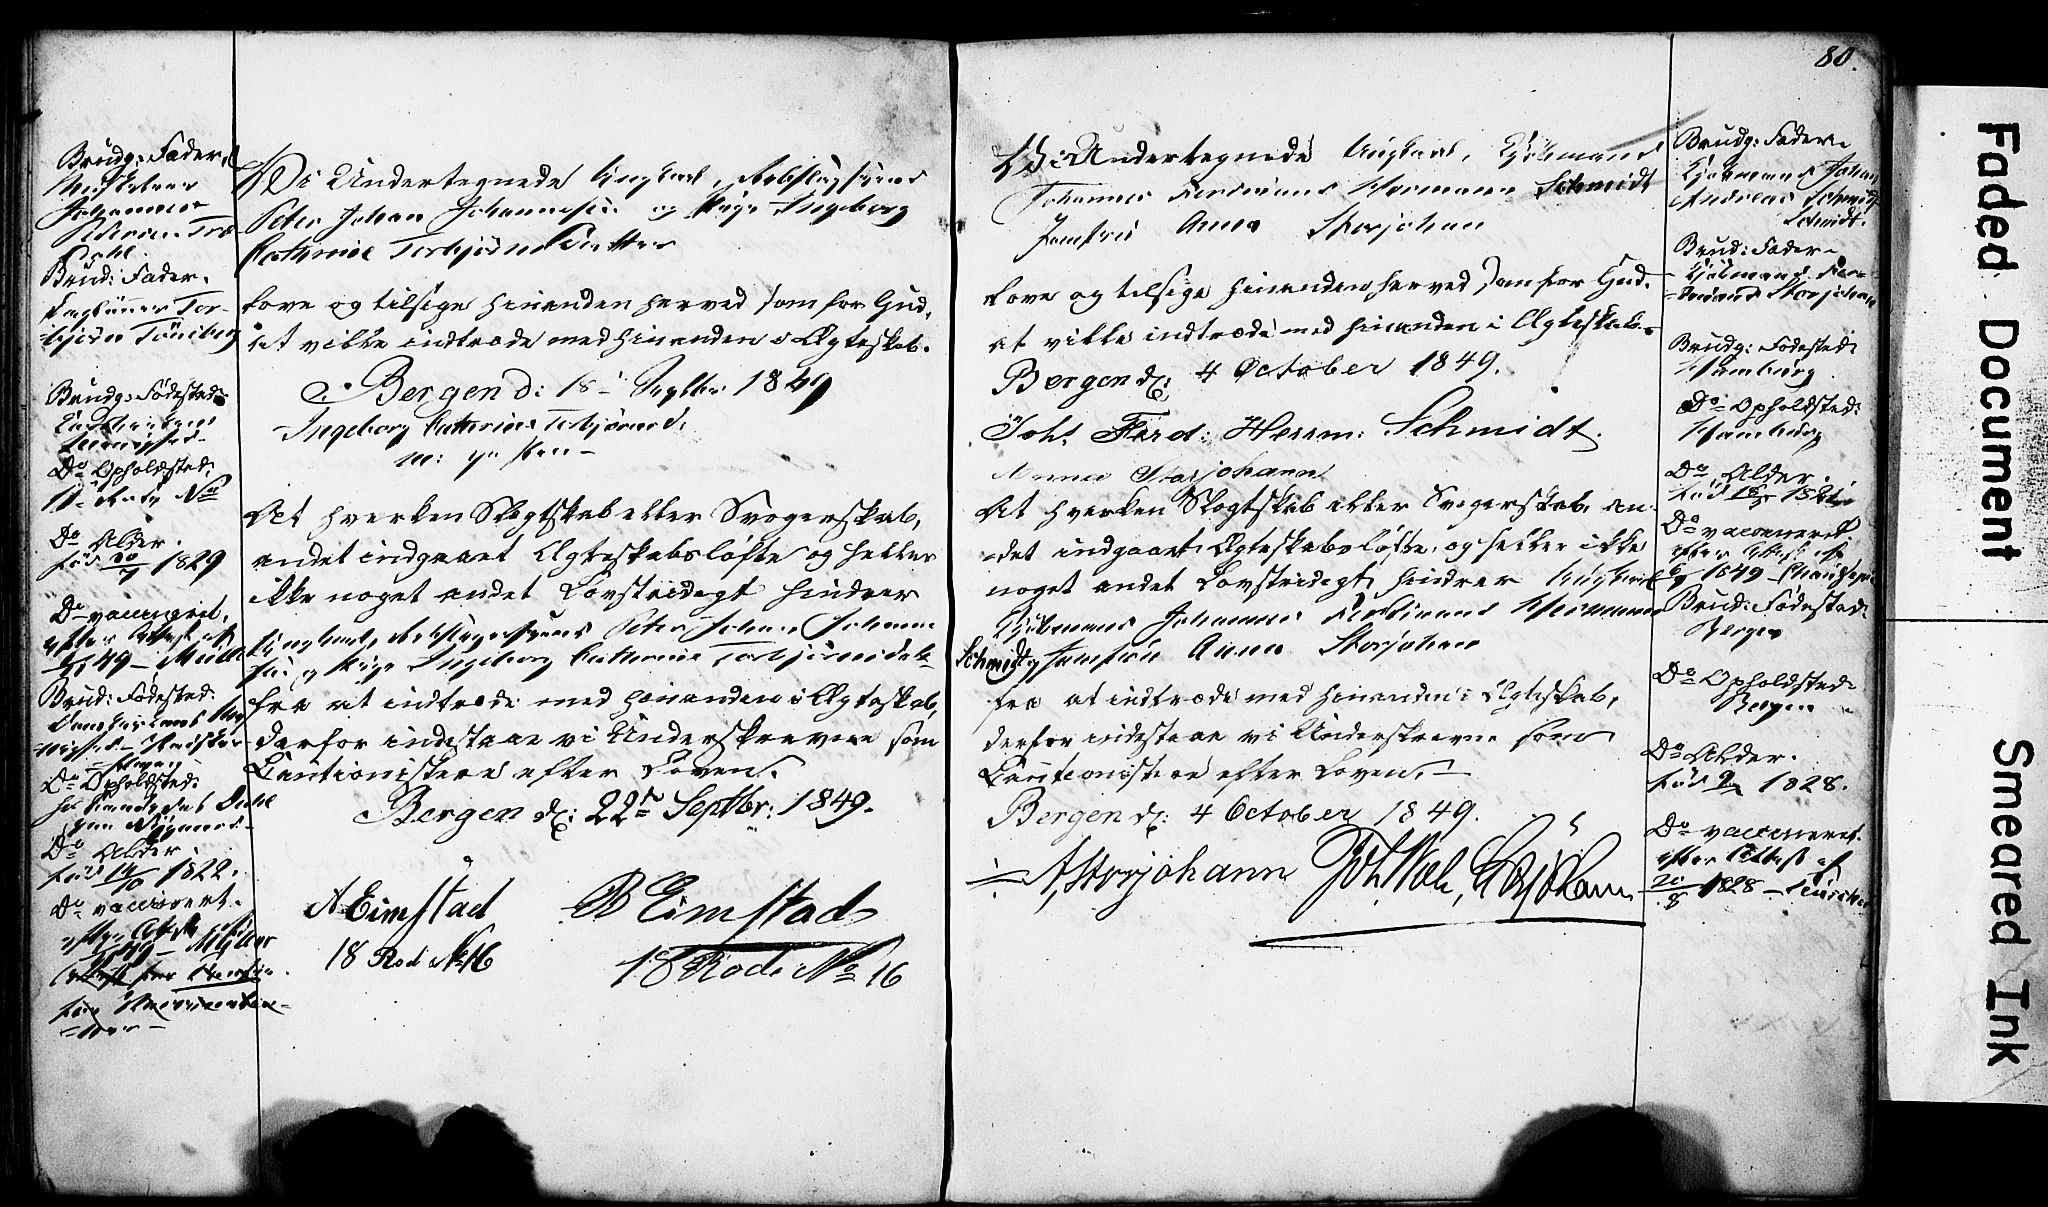 80.
Brudg: Fader,
Johannes
Brud: Fader.
Tor-
bjørn Tønsberg
Brudg: Fødested
Do Opholdsted:
No
Do Alder.
fød 20/7 1829
Do vaccineret,
efter Attest af
49 – Müller
Brud: Fødested:
Do Opholdsted:
Do Alder
fød 14/10 1822.
Do vaccineret.
efter Attest af
1849 – Müller
Vi Undertegnede Ungkarl,
Peter Johan Johannesen og Pige Ingeborg
Cathrine Torbjørnsdatter
love og tilsige hinanden herved som for Gud,
at ville indtræde med hinanden i Ægteskab.
Bergen d: 18 Septbr: 1849
Ingeborg Cathrine Torbjørnsd:
m: p: Pen –
At hverken Slægtskab eller Svogerskab,
andet indgaaet Ægteskabsløfte og heller
ikke noget andet Lovstridigt hindrer
Ungkarl, Peter Johan Johanne
sen og Pige Ingeborg Cathrine Torbjørnsdatter
fra at indtræde med hinanden i Ægteskab,
derfor indestaae vi Underskrevne som
Cautionister efter Loven.
Bergen d: 22de Septbr: 1849.
A Eimstad B Eimstad
18 Rod No 16 18 Rode No 16
Vi Undertegnede Ungkarl, Kjøbmand
Johannes Ferdinand Hermann Schmidt
Jomfru Anna Storjohann
love og tilsige hinanden herved som for Gud.
at ville indtræde med hinanden i Ægteskab.
Bergen d: 4 October 1849.
Joh: Ferd: Herrm: Schmidt.
Anna Storjohann
At hverken Slægtskab eller Svogerskab, an-
det indgaaet Ægteskabsløfte, og heller ikke
noget andet Lovstridigt hindrer Ungkarl
Kjøbmand Johannes Ferdinand Hermann
Schmidt og Jomfru Anna Storjohann
fra at indtræde med hinanden i Ægteskab,
derfor indestaae vi Underskrevne som
Cautionister efter Loven. –
Bergen d: 4 October 1849.
A, Storjohann
Brudg: Fader
Kjøbmand Johan
Andreas Schmidt
Schmidt.
Brud: Fader
Kjøbmand Fer-
dinand Storjohann
Brudg: Fødested:
Hamburg
Do Opholdsted:
Hamburg
Do Alder.
fød
Do vaccineret
efter Attest af
1849
Brud: Fødested:
Bergen
Do Opholdsted:
Bergen
Do Alder.
fød 1828.
Do vaccineret.
efter Attest af
20/8 1828
Faded Document
Smeared Ink